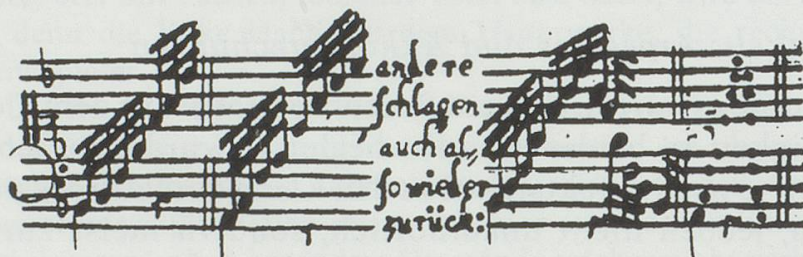 andere
schlagen
auch al⸗
so wieder
zurück: